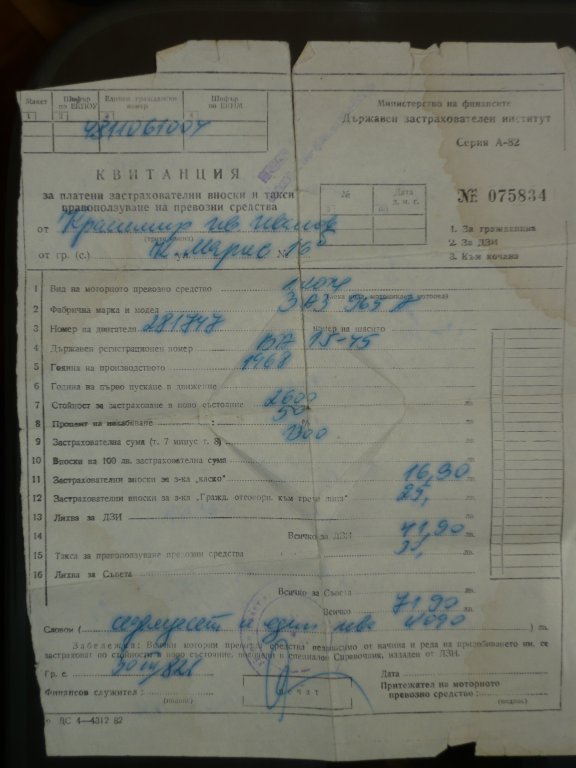 Макет
Шифър по ЕКПОУ
Единен граждански номер
Шифър по ЕКНМ
1 2 3 4
4811061004
Министерство на финансите
Държавен застрахователен институт
Серия А-82
КВИТАНЦИЯ
за платени застрахователни вноски и такси
правоползуване на превозни средства
№
Дата
д. м. г.
№ 075834
от Красимир Ив Иванов
(трите имена)
от гр. (с.) К. Маркс № 16
1. За гражданина
2. За ДЗИ
3. Към кочана
1 Вид на моторното превозно средство
2 Фабрична марка и модел ЗАЗ 965 А
3 Номер на двигателя 281747 Номер на шасито
4 Държавен регистрационен номер ВА 15-45
5 Година на производството 1968
6 Година на първо пускане в движение
7 Стойност за застраховане в ново състояние 2600 лв.
8 Процент на изхабяване : 50 %
9 Застрахователна сума (т. 7 минус т. 8) 1300 лв.
10 Вноски на 100 лв. застрахователна сума
11 Застрахователни вноски за з-ка „каско“ 16,90 лв.
12 Застрахователни вноски за з-ка „Гражд. отговорн. към трети лица“ 25, лв.
13 Лихва за ДЗИ лв.
14 Всичко за ДЗИ 41,90 лв.
15 Такса за правоползуване превозни средства 30, лв.
16 Лихва за Съвета лв.
Всичко за Съвета лв.
Всичко 71,90 лв.
Словом ( седемдесет и един лева и 0,90 ) лв.
Забележка: Всички моторни превозни средства независимо от начина и реда на придобиването им, се
застраховат по стойността в ново състояние, посочена в специалния Справочник, издаден от ДЗИ.
Гр. с.
Дата
Финансов служител :
(подпис)
Печат
Притежател на моторното
превозно средство :
(подпис)
о. ДС 4—4312 82